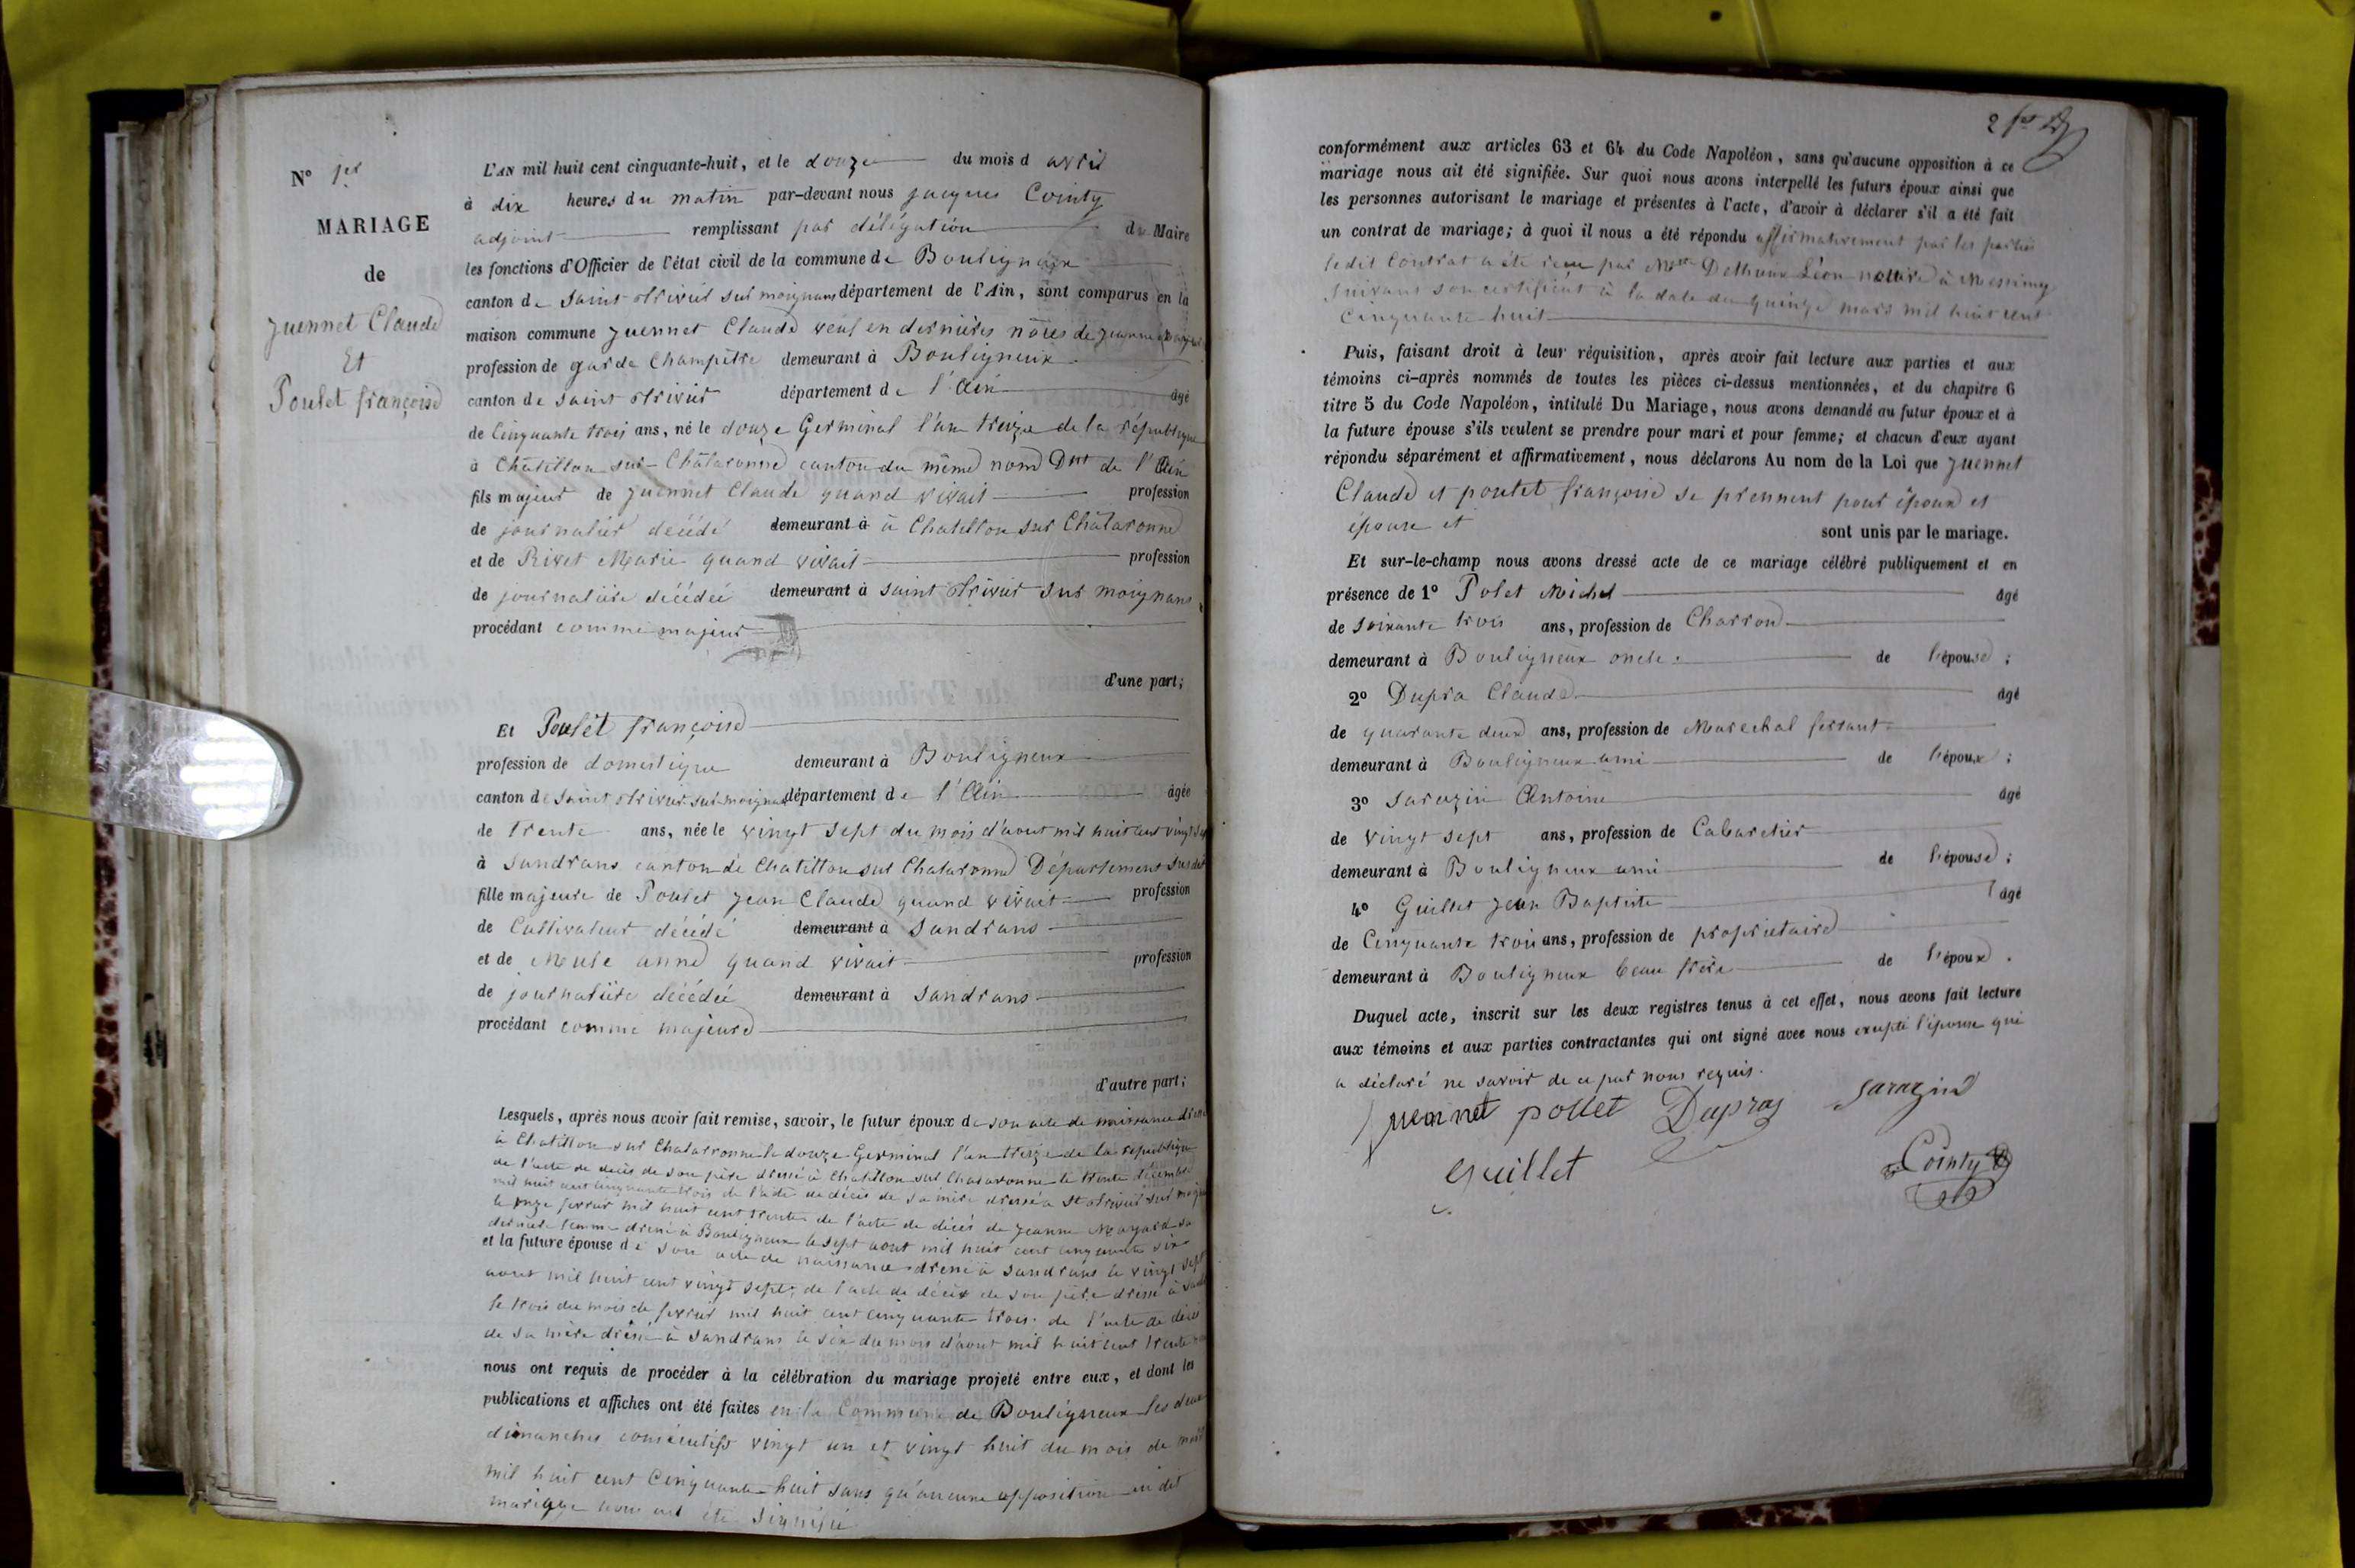 N° 1er
MARIAGE
de
Juennet Claude
Et
Poulet françoise
L'AN mil huit cent cinquante-huit, et le douze du mois d avril
à dix heures du matin par-devant nous jacques Cointy
adjoint remplissant par délégation du Maire
les fonctions d'Officier de l'état civil de la commune de Bouligneux
canton de Saint trivier sur moignans département de l'Ain, sont comparus en la
maison commune Juennet Claude veuf en dernières nôces de jeanne
profession de garde Champêtre demeurant à Bouligneux
canton de saint trivier département de l'Ain âgé
de Cinquante trois ans, né le douze Germinal l'an treize de la république
à Châtillon sur Châlaronne canton du même nom Dmt de l'Ain
fils majeur de Juennet Claude quand vivait profession
de journalier décédé demeurant à à Chatillon sur Châlaronne
et de Rivet Marie quand vivait profession
de journalière décédée demeurant à saint trivier sur moignans
procédant comme majeur
d'une part;
Et Poulet françoise
profession de domestique demeurant à Bouligneux
canton de saint trivier sur moignans département de l'Ain âgée
de trente ans, née le vingt sept du mois d'aout mil huit cent vingt sept
à Sandrans canton de Chatillon sur Chalaronne Département susdit
fille majeure de Poulet Jean Claude quand vivait profession
de Cultivateur décédé demeurant à Sandrans
et de anne quand vivait profession
de journalière décédée demeurant à Sandrans
procédant comme majeure
d'autre part;
Lesquels, après nous avoir fait remise, savoir, le futur époux de son acte de naissance
à Chatillon sur Chalaronne le douze Germinal l'an treize de la république
de l'acte de décès de son père dressé à Chatillon sur Chalaronne le trente décembre
mil huit cent cinquante trois de l'acte de décès de sa mère dressé à St trivier sur
le onze fevrier mil huit cent trente de l'acte de décès de Jeanne sa
dernière femme dressé à Bouligneux le sept aout mil huit cent cinquante six
et la future épouse de son acte de naissance dressé à Sandrans le vingt sept
aout mil huit cent vingt sept, de l'acte de décès de son père dressé à
le trois du mois de fevrier mil huit cent cinquante trois. de l'acte de décès
de sa mère dressé à Sandrans le six du mois d'aout mil huit cent trente
nous ont requis de procéder à la célébration du mariage projeté entre eux, et dont les
publications et affiches ont été faites en la Commune de Bouligneux les deux
dimanches consécutifs vingt un et vingt huit du mois de mars
mil huit cent Cinquante huit sans qu'aucune opposition au dit
mariage nous ait été signifié
conformément aux articles 63 et 64 du Code Napoléon, sans qu'aucune opposition à ce
mariage nous ait été signifiée. Sur quoi nous avons interpellé les futurs époux ainsi que
les personnes autorisant le mariage et présentes à l'acte, d'avoir à déclarer s'il a été fait
un contrat de mariage; à quoi il nous a été répondu affirmativement par les parties
ledit Contrat a été reçu par Léon notaire à Messimy
suivant son certificat à la date du quinze mars mil huit cent
cinquante huit
Puis, faisant droit à leur réquisition, après avoir fait lecture aux parties et aux
témoins ci-après nommés de toutes les pièces ci-dessus mentionnées, et du chapitre 6
titre 5 du Code Napoléon, intitulé Du Mariage, nous avons demandé au futur époux et à
la future épouse s'ils veulent se prendre pour mari et pour femme; et chacun d'eux ayant
répondu séparément et affirmativement, nous déclarons Au nom de la Loi que Juennet
Claude et poulet françoise se prennent pour époux et
épouse et sont unis par le mariage.
Et sur-le-champ nous avons dressé acte de ce mariage célébré publiquement et en
présence de 1° Polet Michel âgé
de soixante trois ans, profession de Charron
demeurant à Bouligneux oncle de l'épouse;
2° Dupra Claude âgé
de quarante deux ans, profession de Marechal ferrant
demeurant à Bouligneux ami de l'époux;
3° Sarazin Antoine âgé
de vingt sept ans, profession de Cabaretier
demeurant à Bouligneux ami de l'épouse;
4° Guillet Jean Baptiste âgé
de Cinquante trois ans, profession de propriétaire
demeurant à Bouligneux beau frère de l'époux.
Duquel acte, inscrit sur les deux registres tenus à cet effet, nous avons fait lecture
aux témoins et aux parties contractantes qui ont signé avec nous excepté l'épouse qui
a déclaré ne savoir de ce par nous requis.
juennet pollet Dupras Sarazin
guillet Cointy